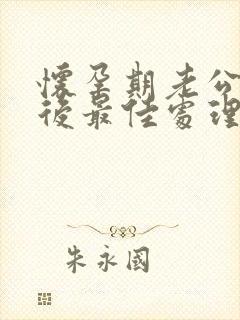 懷孕期老公
後最佳處理
朱永國